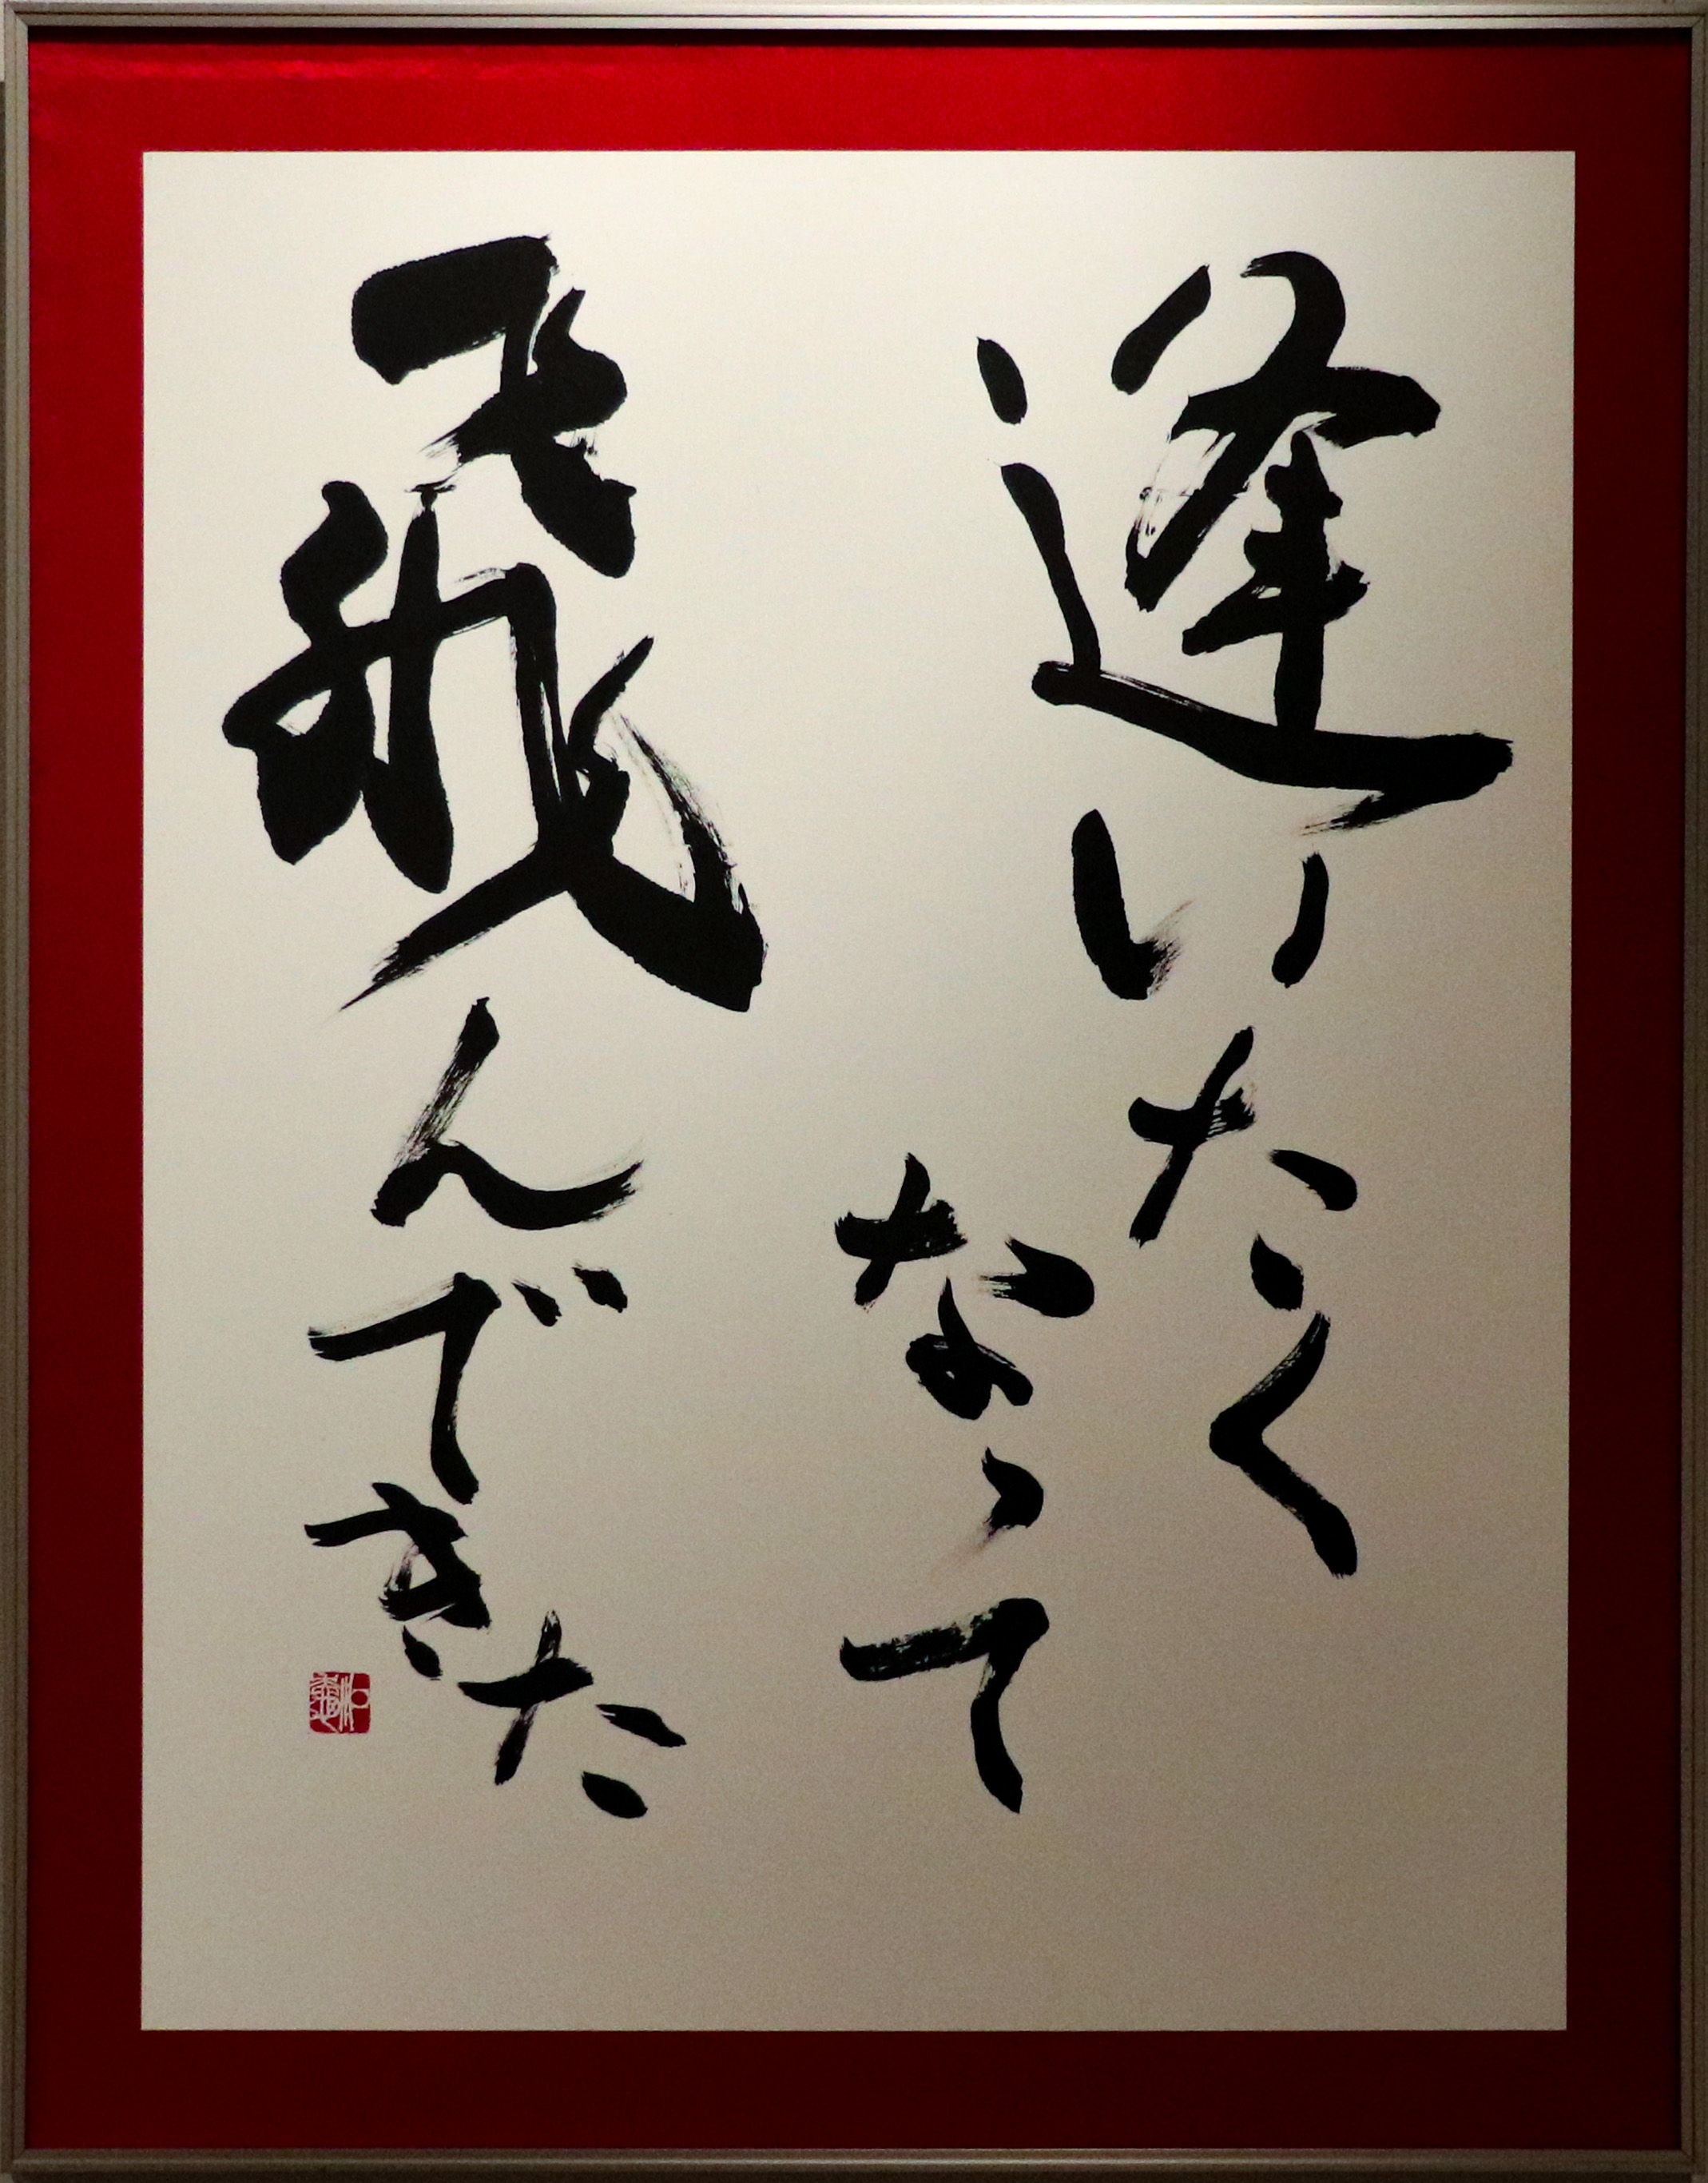 逢いたく
なって
飛んできた